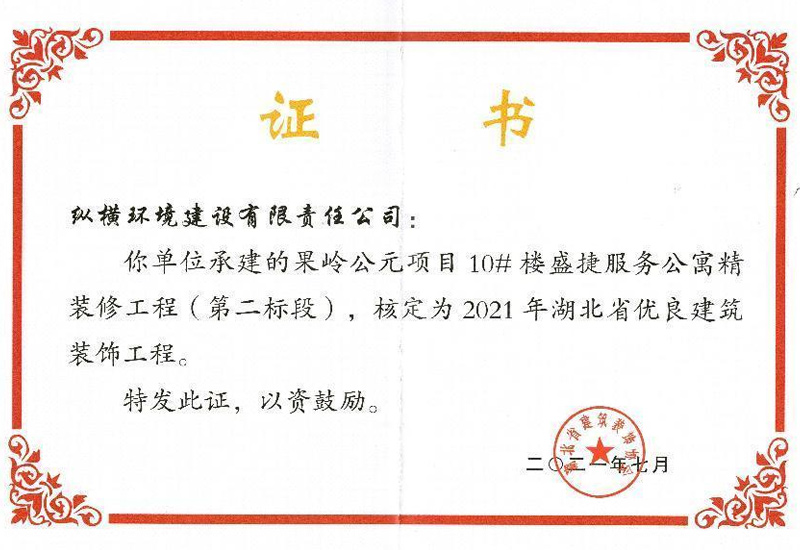 证 书
纵横环境建设有限责任公司：
你单位承建的果岭公元项目10#楼盛捷服务公寓精
装修工程（第二标段），核定为2021年湖北省优良建筑
装饰工程。
特发此证，以资鼓励。
湖北省建筑装饰协会
二〇二一年七月